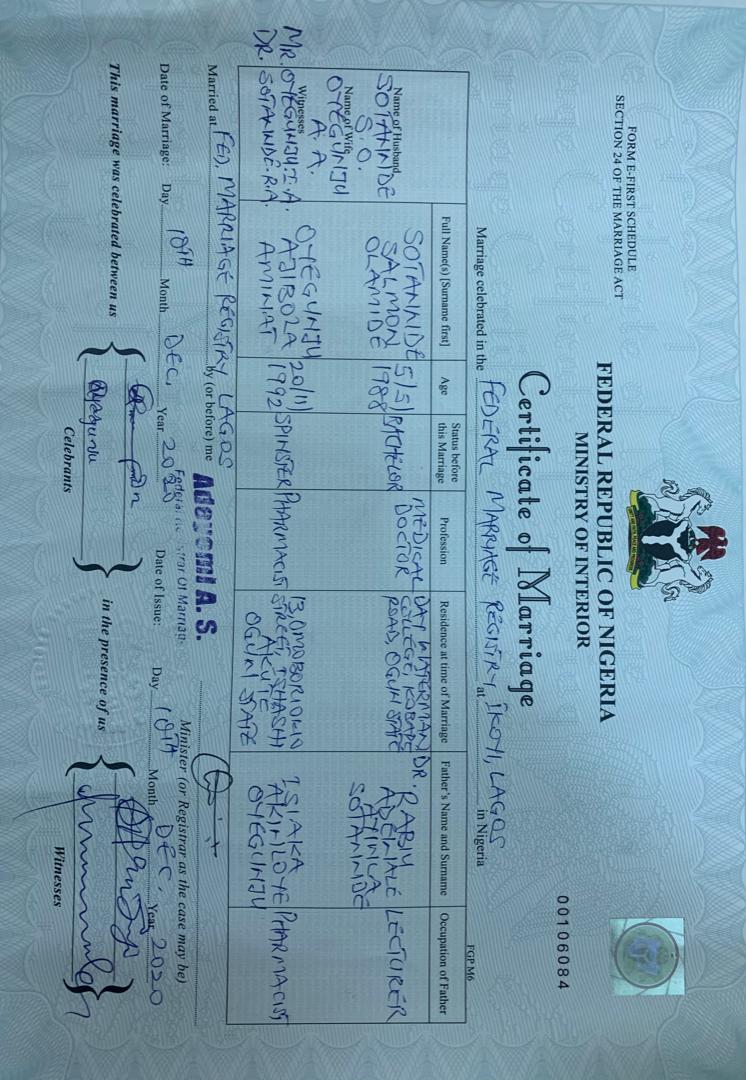 FORM E-FIRST SCHEDULE
SECTION 24 OF THE MARRIAGE ACT
00106084
FEDERAL REPUBLIC OF NIGERIA
MINISTRY OF INTERIOR
Certificate of Marriage
FGP M6
Marriage celebrated in the FEDERAL MARRIAGE REGISTRY IKOYI, LAGOS at in Nigeria
Full Name(s) [Surname first] Age Status before this Marriage Profession Residence at time of Marriage Father's Name and Surname Occupation of Father
Name of Husband
SOTANNDE
S.O.
SOTANNDE
SALMON
OLAMIDE
5/5/
1988
BACHELOR
MEDICAL
DOCTOR
COLLEGE KOBAPE
ROAD, OGUN STATE
DR. RABIU
ADEWALE
SOTANNDE
LECTURER
Name of Wife
OYEGUNJU
A.A.
OYEGUNJU
AJIBOLA
AMINAT
20/11/
1992
SPINSTER
PHARMACIST
STREET, ISHASHI
AKUTE
OGUN STATE
ISIAKA
AKINLOYE
OYEGUNJU
PHARMACIST
Witnesses
MR. OYEGUNJU. I. A.
DR. SOTANNDE. R. A.
Married at FED. MARRIAGE REGISTRY LAGOS by (or before) me
Adeyomi A. S.
Minister (or Registrar as the case may be)
Date of Marriage: Day 10TH Month DEC, Year 2020 Date of Issue: Day 10TH Month DEC. Year 2020
This marriage was celebrated between us in the presence of us
Oyegunju
Celebrants
Witnesses